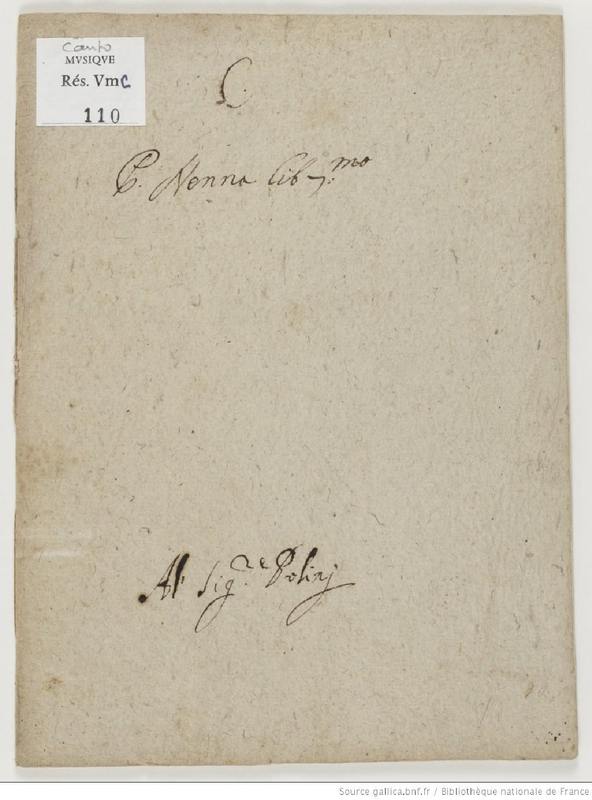 Canto
MVSIQVE
Rés. VmC
110
C
P. Nenna lib 7.mo
Al Sig.re
Source gallica.bnf.fr / Bibliothèque nationale de France